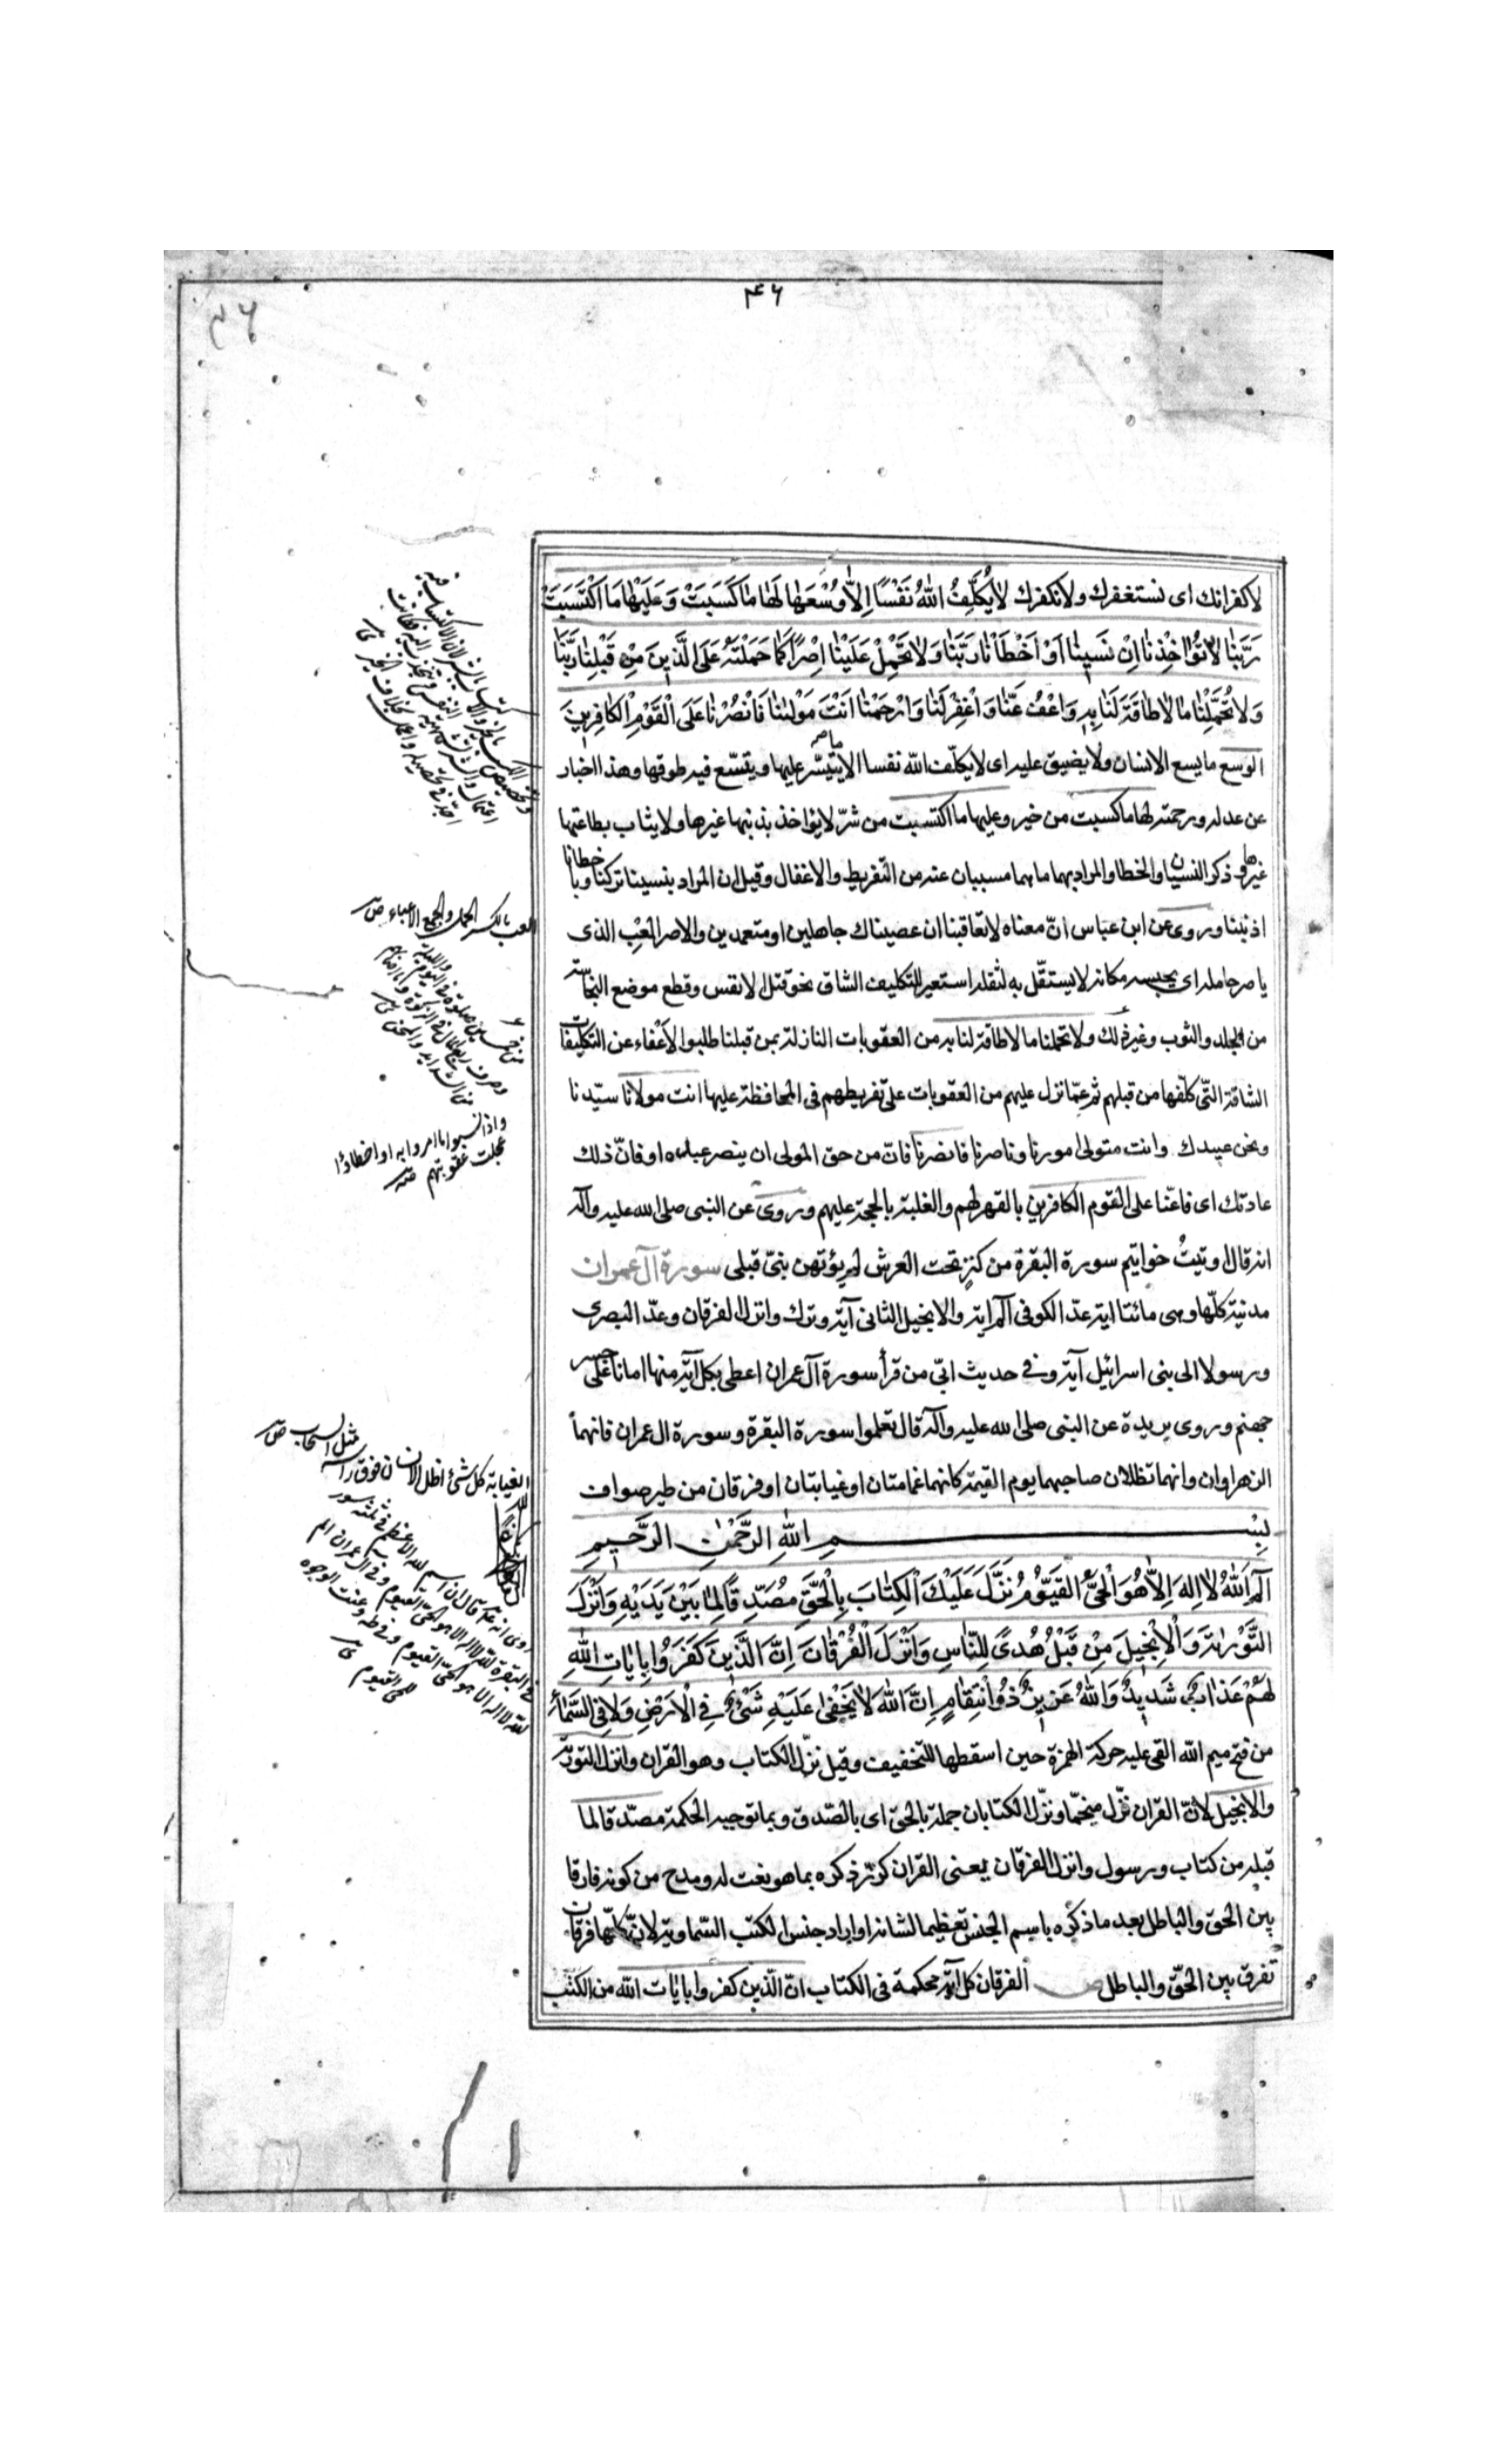 ٣٤
٤٦
لا كفرانك اى نستغفرك ولا نكفرك لَا يُكَلِّفُ اللّٰهُ نَفْسًا اِلَّا وُسْعَهَا لَهَا مَا كَسَبَتْ وَعَلَيْهَا مَا اكْتَسَبَتْ
رَبَّنَا لَا تُؤَاخِذْنَا اِنْ نَسِينَا اَوْ اَخْطَأْنَا رَبَّنَا وَلَا تَحْمِلْ عَلَيْنَا اِصْرًا كَمَا حَمَلْتَهُ عَلَى الَّذِينَ مِنْ قَبْلِنَا رَبَّنَا
وَلَا تُحَمِّلْنَا مَا لَا طَاقَةَ لَنَا بِهِ وَاعْفُ عَنَّا وَاغْفِرْ لَنَا وَارْحَمْنَا اَنْتَ مَوْلٰينَا فَانْصُرْنَا عَلَى الْقَوْمِ الْكَافِرِينَ
الوسع ما يسع الانسان ولا يضيق عليه اى لا يكلّف الله نفسا الا ما يتيسّر عليها ويتسّع فيه طوقها وهذا اخبار
عن عدله ورحمته لها ما كسبت من خير وعليها ما اكتسبت من شرّ لا يؤاخذ بذنبها غيرها ولا يثاب بطاعتها
غيرها وذكر النسيان والخطا والمراد بهما ما هما مسببان عنه من التفريط والاغفال وقيل ان المراد بنسينا تركنا وباخطانا
اذنبنا وروى عن ابن عباس انّ معناه لا تعاقبنا ان عصيناك جاهلين او متعمدين والاصر العِبْ الذى
ياصر حامله اى يحبسه مكانه لا يستقلّ به لثقله استعير للتكليف الشاق نحو قتل الانفس وقطع موضع النجاسة
من الجلد والثوب وغير ذلك ولا تحملنا ما لا طاقة لنا به من العقوبات النازلة بمن قبلنا طلبوا الاعفاء عن التكليفات
الشاقة التى كلّفها من قبلهم ثم عمّا نزل عليهم من العقوبات على تفريطهم فى المحافظة عليها انت مولانا سيّدنا
ونحن عبيدك وانت متولى امورنا وناصرنا فانصرنا فانّ من حق المولى ان ينصر عباده او فانّ ذلك
عادتك اى فاعنّا على القوم الكافرين بالقهر لهم والغلبة بالحجة عليهم وروى عن النبى صلى الله عليه وآله
انه قال اوتيتُ خواتيم سورة البقرة من كنز تحت العرش لم يؤتهن نبىّ قبلى سورة آل عمران
مدنية كلّها وهى مائتا اية عدّ الكوفى آلم اية والانجيل الثانى آية وترك وانزل الفرقان وعدّ البصرى
ورسولا الى بنى اسرائيل آية وفى حديث ابىّ من قرأ سورة آل عمران اعطى بكل آية منها امانا على جسر
جهنم وروى بريدة عن النبى صلى الله عليه وآله قال تعلموا سورة البقرة وسورة ال عمران فانهما
الزهراوان وانهما تظلان صاحبهما يوم القيمة كانهما غمامتان او غيابتان او فرقان من طير صواف
بِسْمِ اللّٰهِ الرَّحْمٰنِ الرَّحِيمِ
آلم اَللّٰهُ لَا اِلٰهَ اِلَّا هُوَ الْحَىُّ الْقَيُّومُ نَزَّلَ عَلَيْكَ الْكِتَابَ بِالْحَقِّ مُصَدِّقًا لِمَا بَيْنَ يَدَيْهِ وَاَنْزَلَ
التَّوْرٰيةَ وَالْاِنْجِيلَ مِنْ قَبْلُ هُدًى لِلنَّاسِ وَاَنْزَلَ الْفُرْقَانَ اِنَّ الَّذِينَ كَفَرُوا بِاٰيَاتِ اللّٰهِ
لَهُمْ عَذَابٌ شَدِيدٌ وَاللّٰهُ عَزِيزٌ ذُو انْتِقَامٍ اِنَّ اللّٰهَ لَا يَخْفٰى عَلَيْهِ شَىْءٌ فِى الْاَرْضِ وَلَا فِى السَّمَاءِ
من فتح ميم الله القى عليه حركة الهمزة حين اسقطها للتخفيف وقيل نزّل الكتاب وهو القران وانزل التورية
والانجيل لانّ القران نزّل منجّما ونزّل الكتابان جملة بالحق اى بالصّدق وبما توجبه الحكمة مصدّقا لما
قبله من كتاب ورسول وانزل الفرقان يعنى القران كرّر ذكره بما هو نعت له ومدح من كونه فارقا
بين الحق والباطل بعد ما ذكره باسم الجنس تعظيما لشانه او اراد جنس الكتب السّماوية لانّ كلّها فرقان
تفرق بين الحقّ والباطل ص الفرقان كل آية محكمة فى الكتاب انّ الّذين كفروا بايات الله من الكتب
العب بالكسر الحمل والجمع الاعباء ص
واذا نسوا ما امروا به او اخطاوا
عجلت عقوبتهم
الغياية كل شئ اظل الانسان فوق راسه
مثل السحاب ص
روى انه قال ان اسم الله الاعظم فى ثلثة سور
فى البقرة الله لا اله الا هو الحى القيوم وفى ال عمران الم
الله لا اله الا هو الحى القيوم وفى طه وعنت الوجوه
للحى القيوم